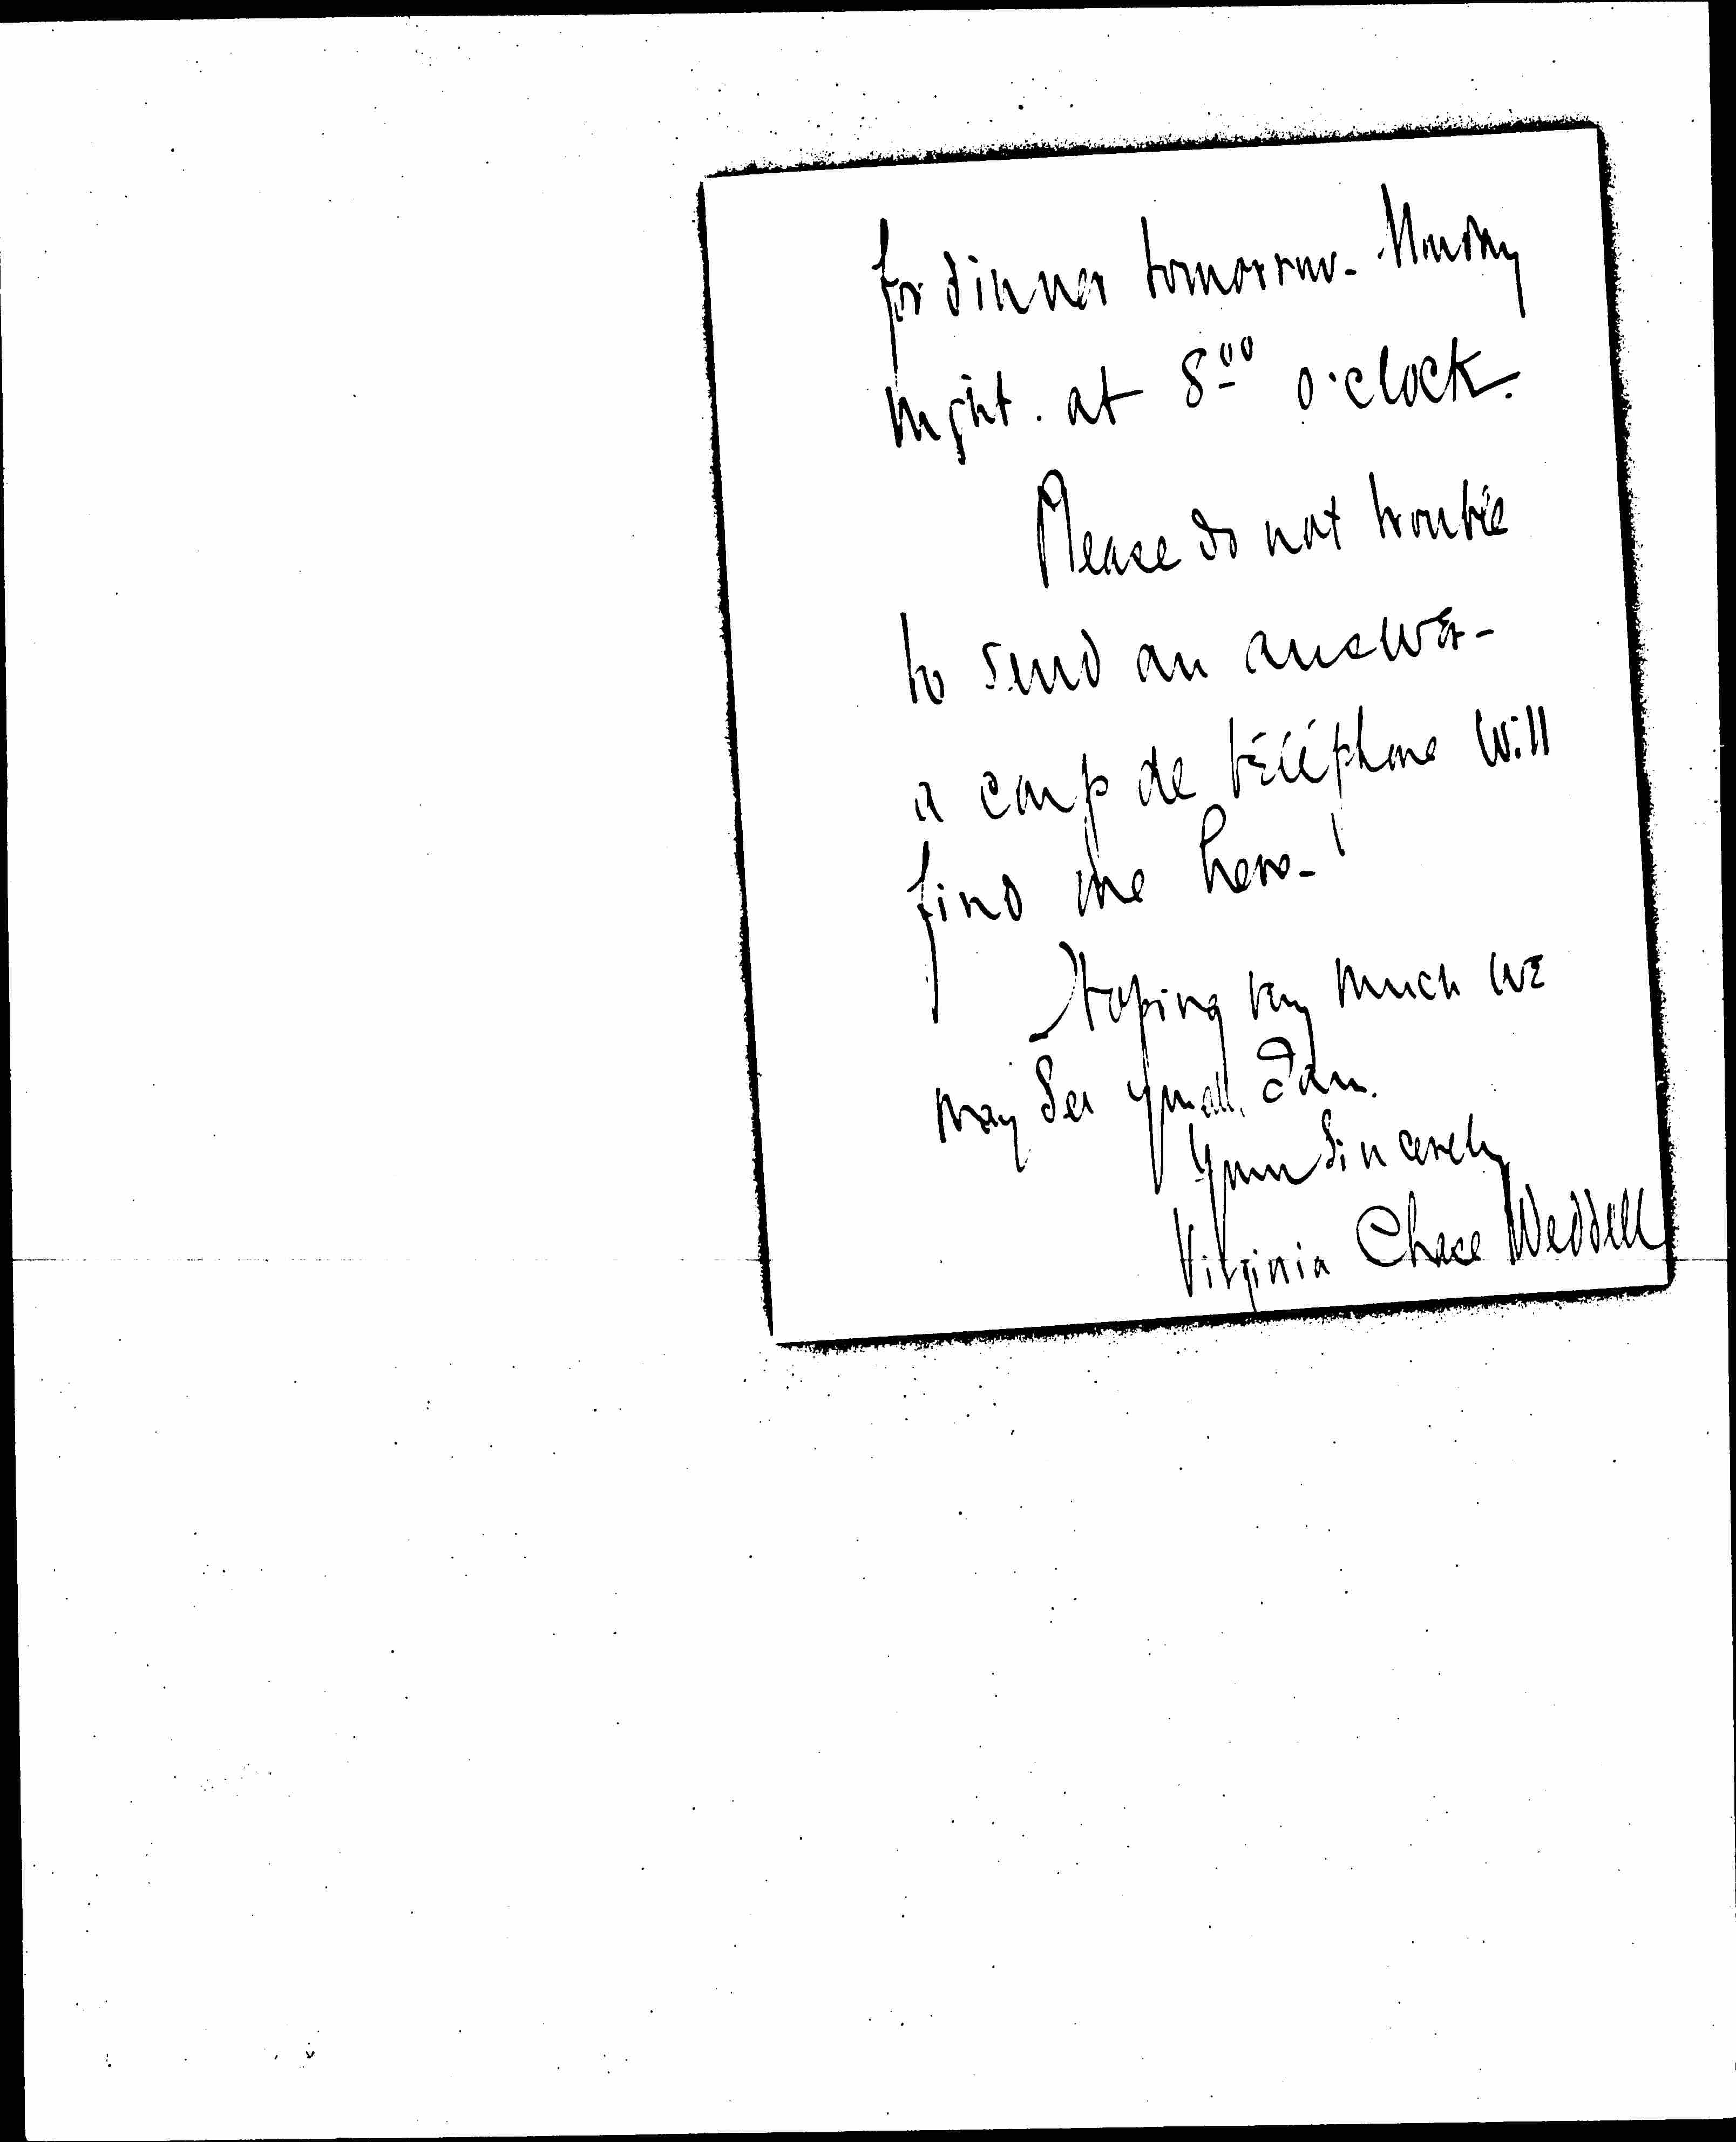 for dinner tomorrow - Monday
night. at 8 00 o'clock.
Please do not trouble
to send an answer -
a coup de téléphone will
find me here -
Hoping very much we
may see you all. I am.
Yours Sincerely
Virginia Chase Weddell